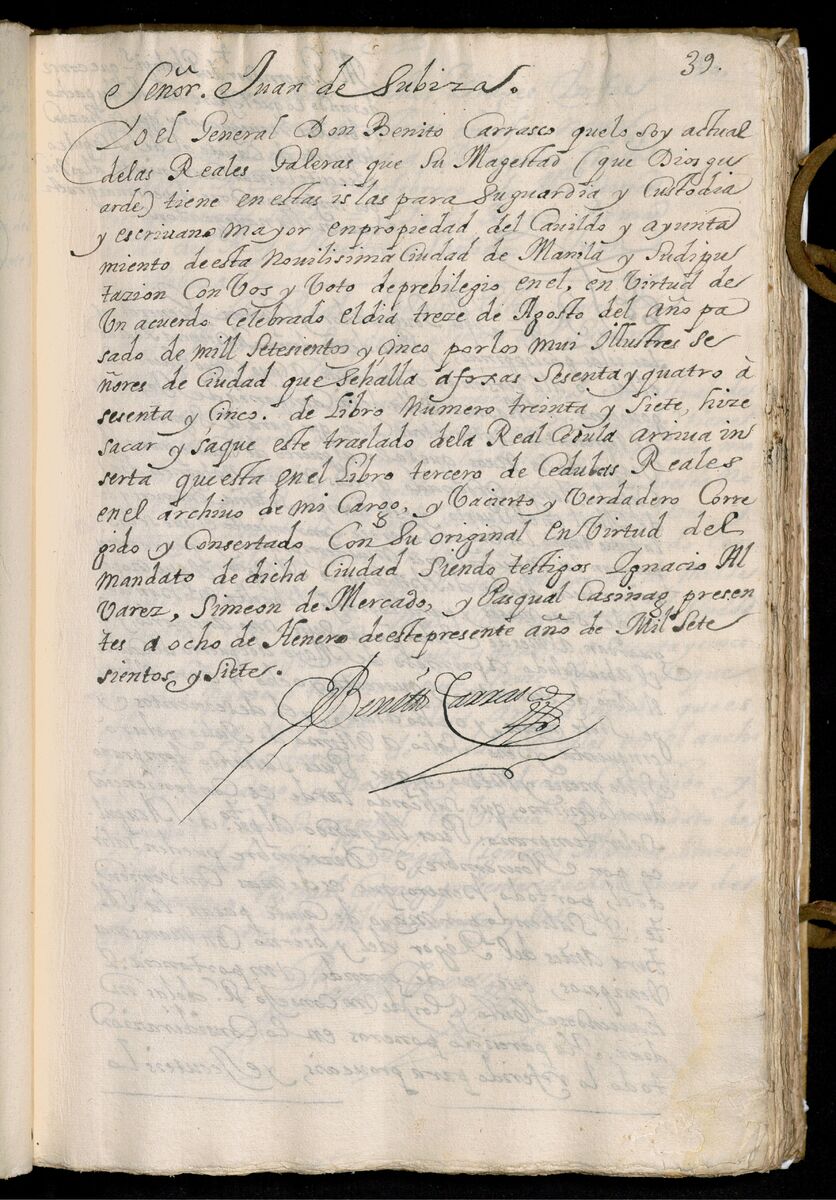 39.
Señor. Juan de Subiza.
Yo el General Don Benito Carrasco quelo soy actual
delas Reales Galeras que Su Magestad (que Dios gu
arde) tiene en estas islas para su guardia y Custodia
y escrivano mayor en propiedad del Cavildo y ayunta
miento de esta Novilisima Ciudad de Manila y Sudipu
tazion Con Vos y Voto de prebilegio en el, en Virtud de
Un acuerdo Celebrado el dia treze de Agosto del año pa
sado de mill Setesientos y Cinco por los mui Illustres se
ñores de Ciudad que se halla a foxas Sesenta y quatro à
sesenta y Cinco. de Libro Numero treinta y Siete, hize
sacar y saque este traslado dela Real Cedula arriva in
serta que esta en el Libro tercero de Cedulas Reales
en el archivo de mi Cargo, y Va cierto y Verdadero Corre
gido y Consertado Con Su original en Virtud del
mandato de dicha Ciudad Siendo testigos Ignacio Al
varez, Simeon de Mercado, y Pasqual Casinag presen
tes a ocho de Henero de este presente año de Mil Sete
sientos y Siete.
Benito Carrasco